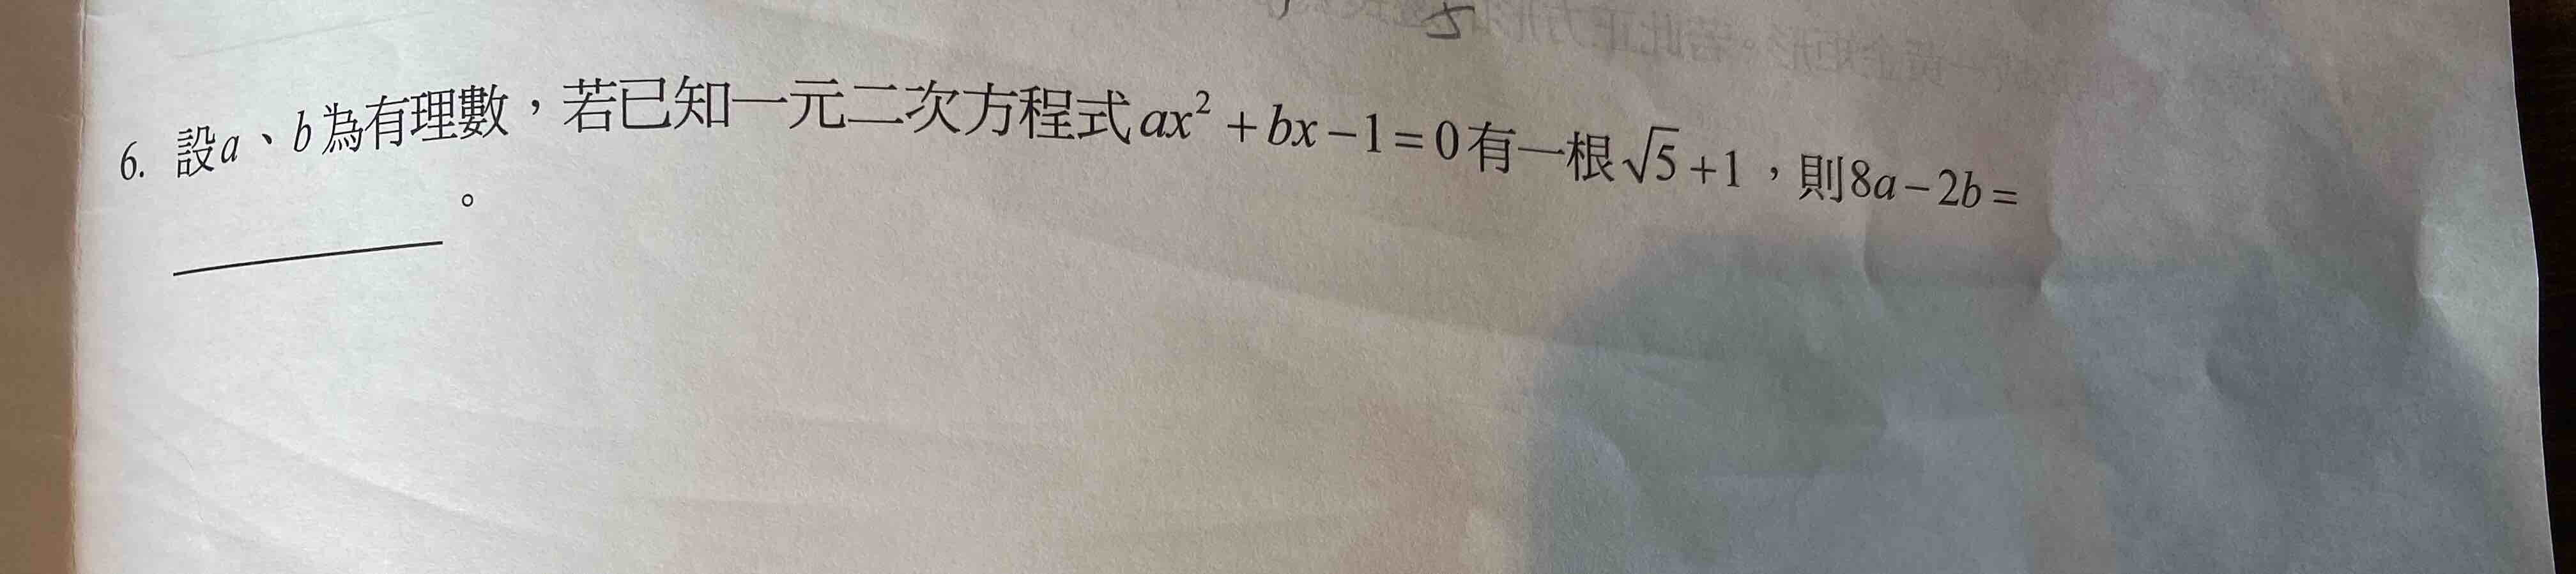 6. 設a、b為有理數，若已知一元二次方程式ax²+bx−1=0有一根√5+1，則8a−2b=
。